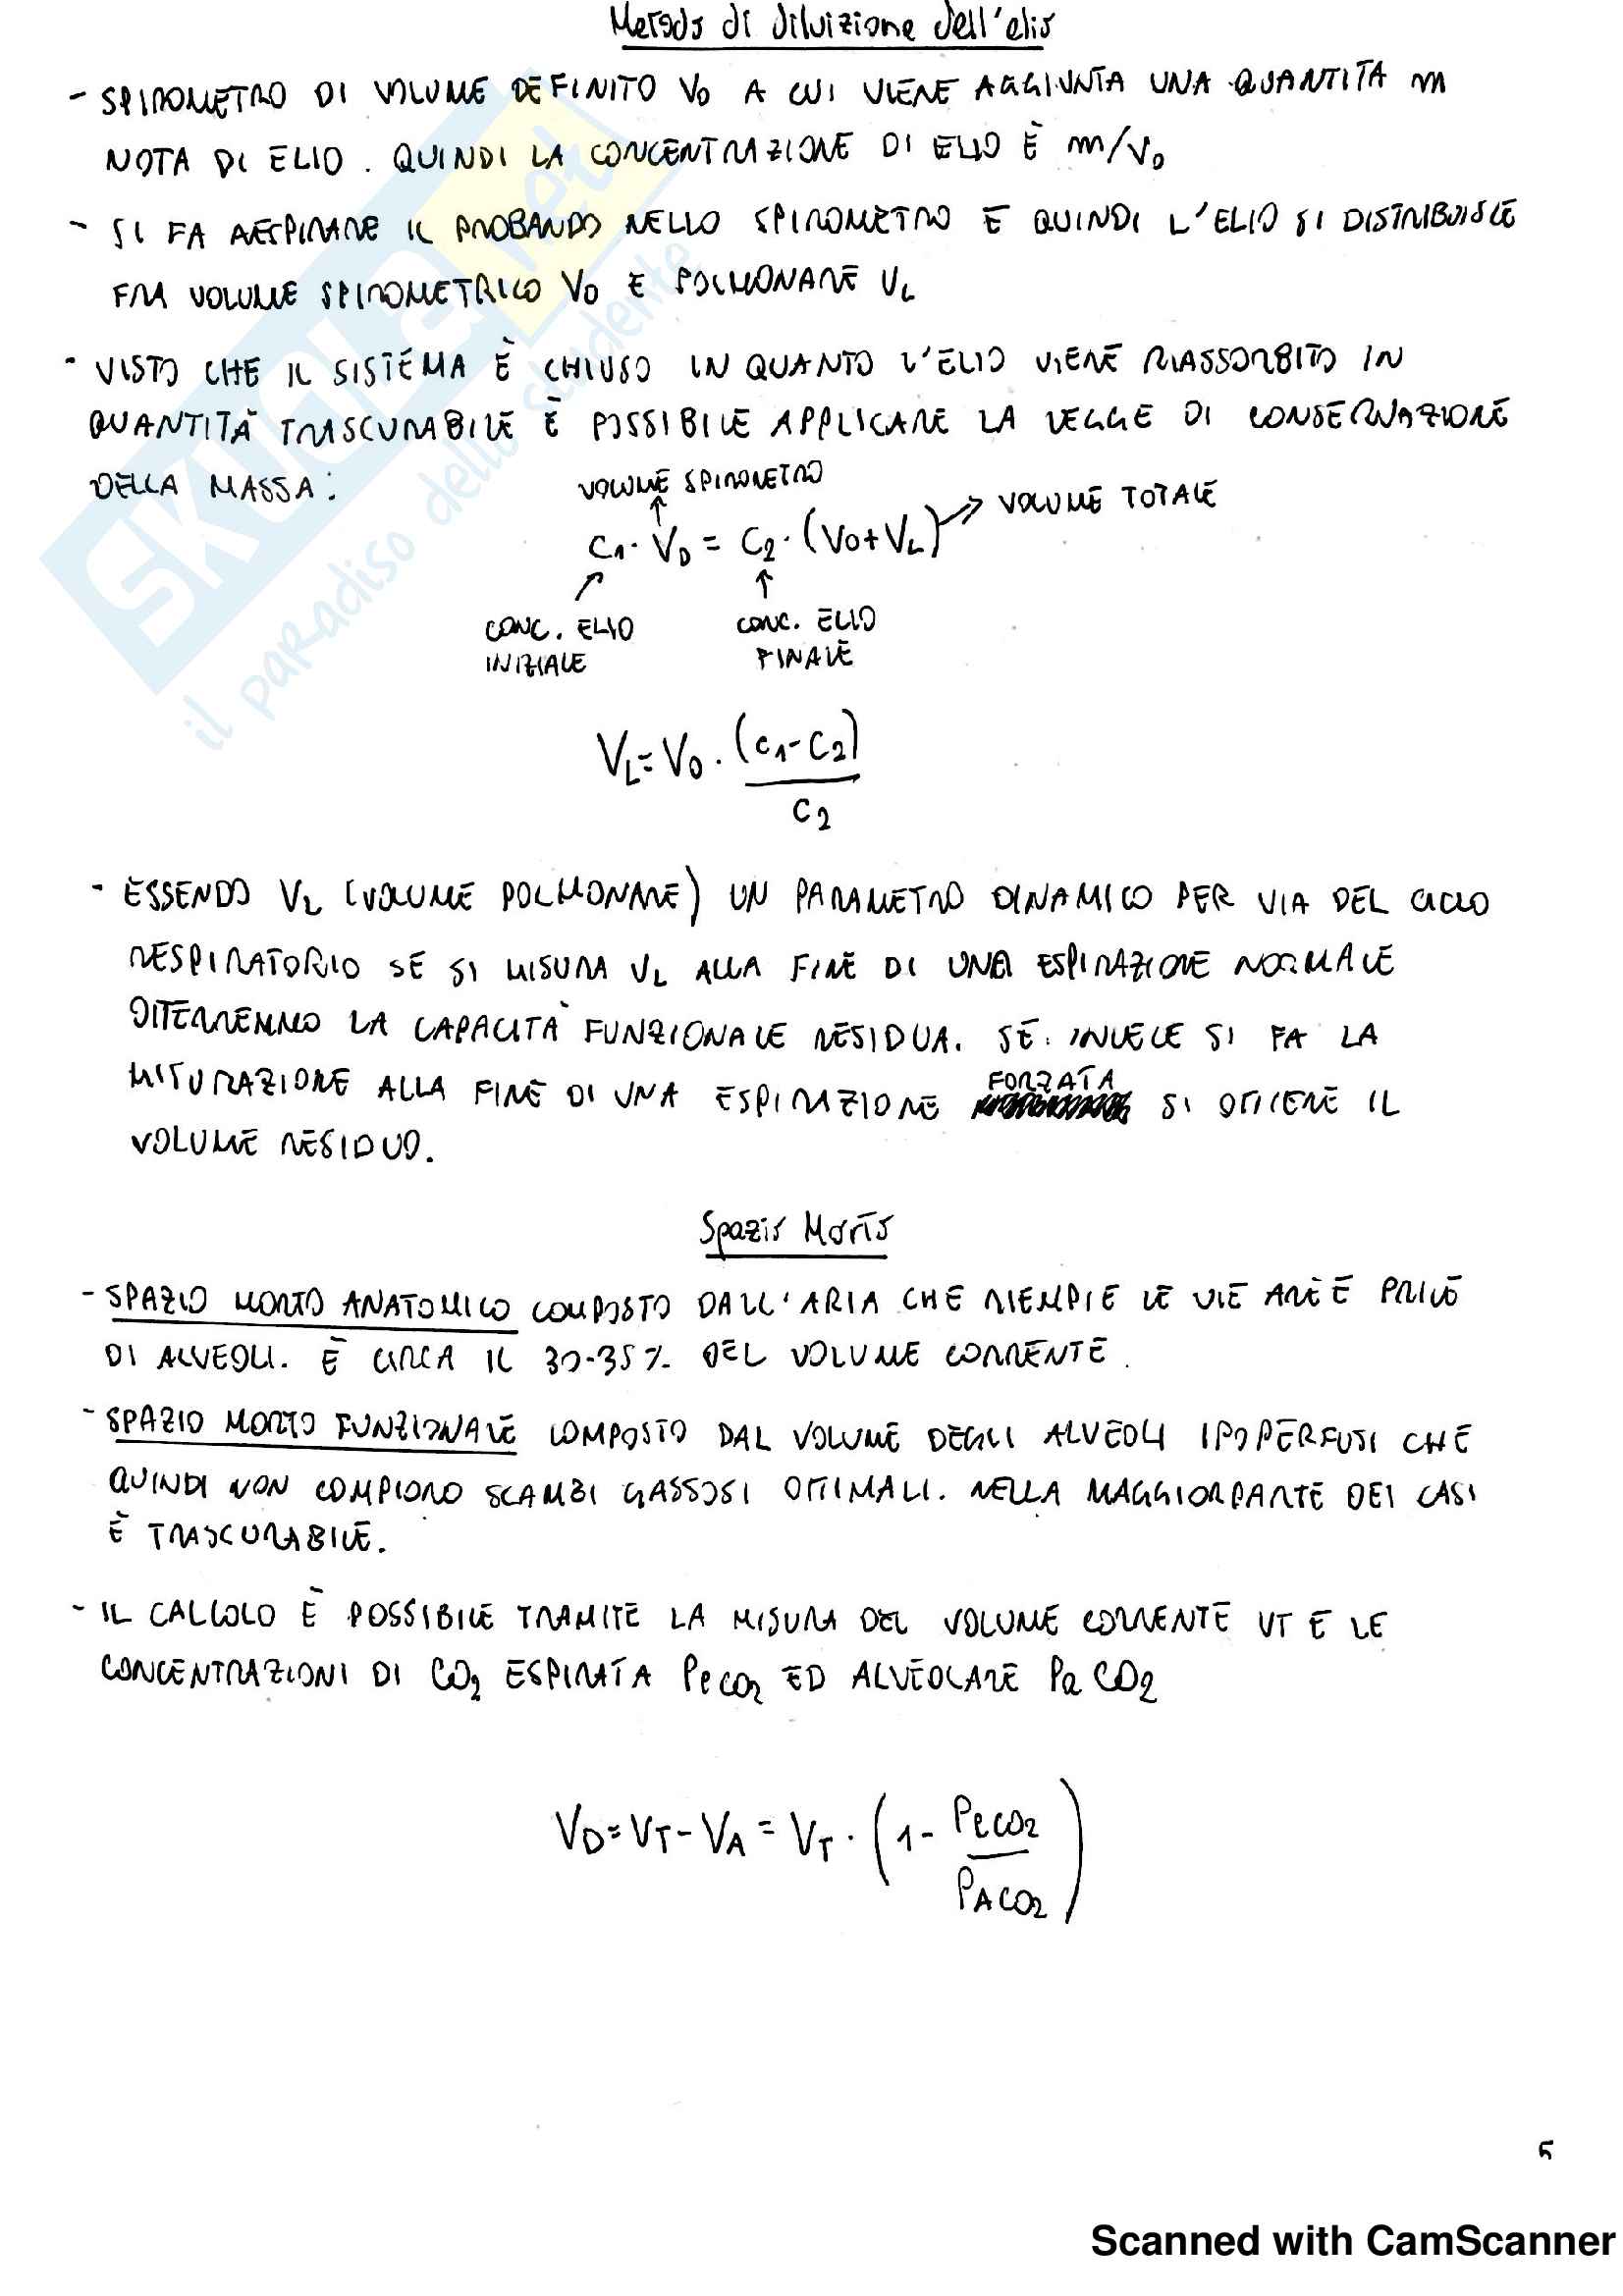 Metodo di diluizione dell'elio
- SPIROMETRO DI VOLUME DEFINITO V0 A CUI VIENE AGGIUNTA UNA QUANTITÀ m
NOTA DI ELIO. QUINDI LA CONCENTRAZIONE DI ELIO È m/V0
- SI FA RESPIRARE IL PROBANDO NELLO SPIROMETRO E QUINDI L'ELIO SI DISTRIBUISCE
FRA VOLUME SPIROMETRICO V0 E POLMONARE VL
- VISTO CHE IL SISTEMA È CHIUSO IN QUANTO L'ELIO VIENE RIASSORBITO IN
QUANTITÀ TRASCURABILE È POSSIBILE APPLICARE LA LEGGE DI CONSERVAZIONE
DELLA MASSA:
VOLUME SPIROMETRO
C1 · V0 = C2 · (V0+VL) → VOLUME TOTALE
CONC. ELIO INIZIALE
CONC. ELIO FINALE
VL = V0 · (C1-C2) / C2
- ESSENDO VL (VOLUME POLMONARE) UN PARAMETRO DINAMICO PER VIA DEL CICLO
RESPIRATORIO SE SI MISURA VL ALLA FINE DI UNA ESPIRAZIONE NORMALE
OTTERREMMO LA CAPACITÀ FUNZIONALE RESIDUA. SE INVECE SI FA LA
MISURAZIONE ALLA FINE DI UNA ESPIRAZIONE FORZATA SI OTTIENE IL
VOLUME RESIDUO.
Spazio Morto
- SPAZIO MORTO ANATOMICO COMPOSTO DALL'ARIA CHE RIEMPIE LE VIE AREE PRIVE
DI ALVEOLI. È CIRCA IL 30-35% DEL VOLUME CORRENTE.
- SPAZIO MORTO FUNZIONALE COMPOSTO DAL VOLUME DEGLI ALVEOLI IPOPERFUSI CHE
QUINDI NON COMPIONO SCAMBI GASSOSI OTTIMALI. NELLA MAGGIORPARTE DEI CASI
È TRASCURABILE.
- IL CALCOLO È POSSIBILE TRAMITE LA MISURA DEL VOLUME CORRENTE VT E LE
CONCENTRAZIONI DI CO2 ESPIRATA PeCO2 ED ALVEOLARE PaCO2
VD = VT - VA = VT · (1 - PeCO2 / PACO2)
5
Scanned with CamScanner
SKUOLA.net
il paradiso dello studente